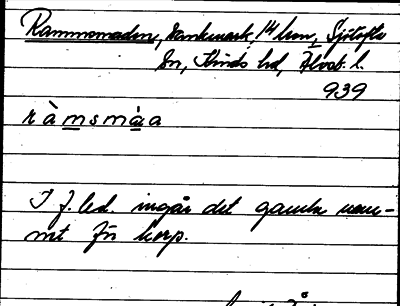 Rammsmaden, sankmark, 14 hm, Sjötofta
sn, Kinds hd, Älvsb. l.
939
ràmsmàa
I f. led. ingår det gamla nam-
net för korp.